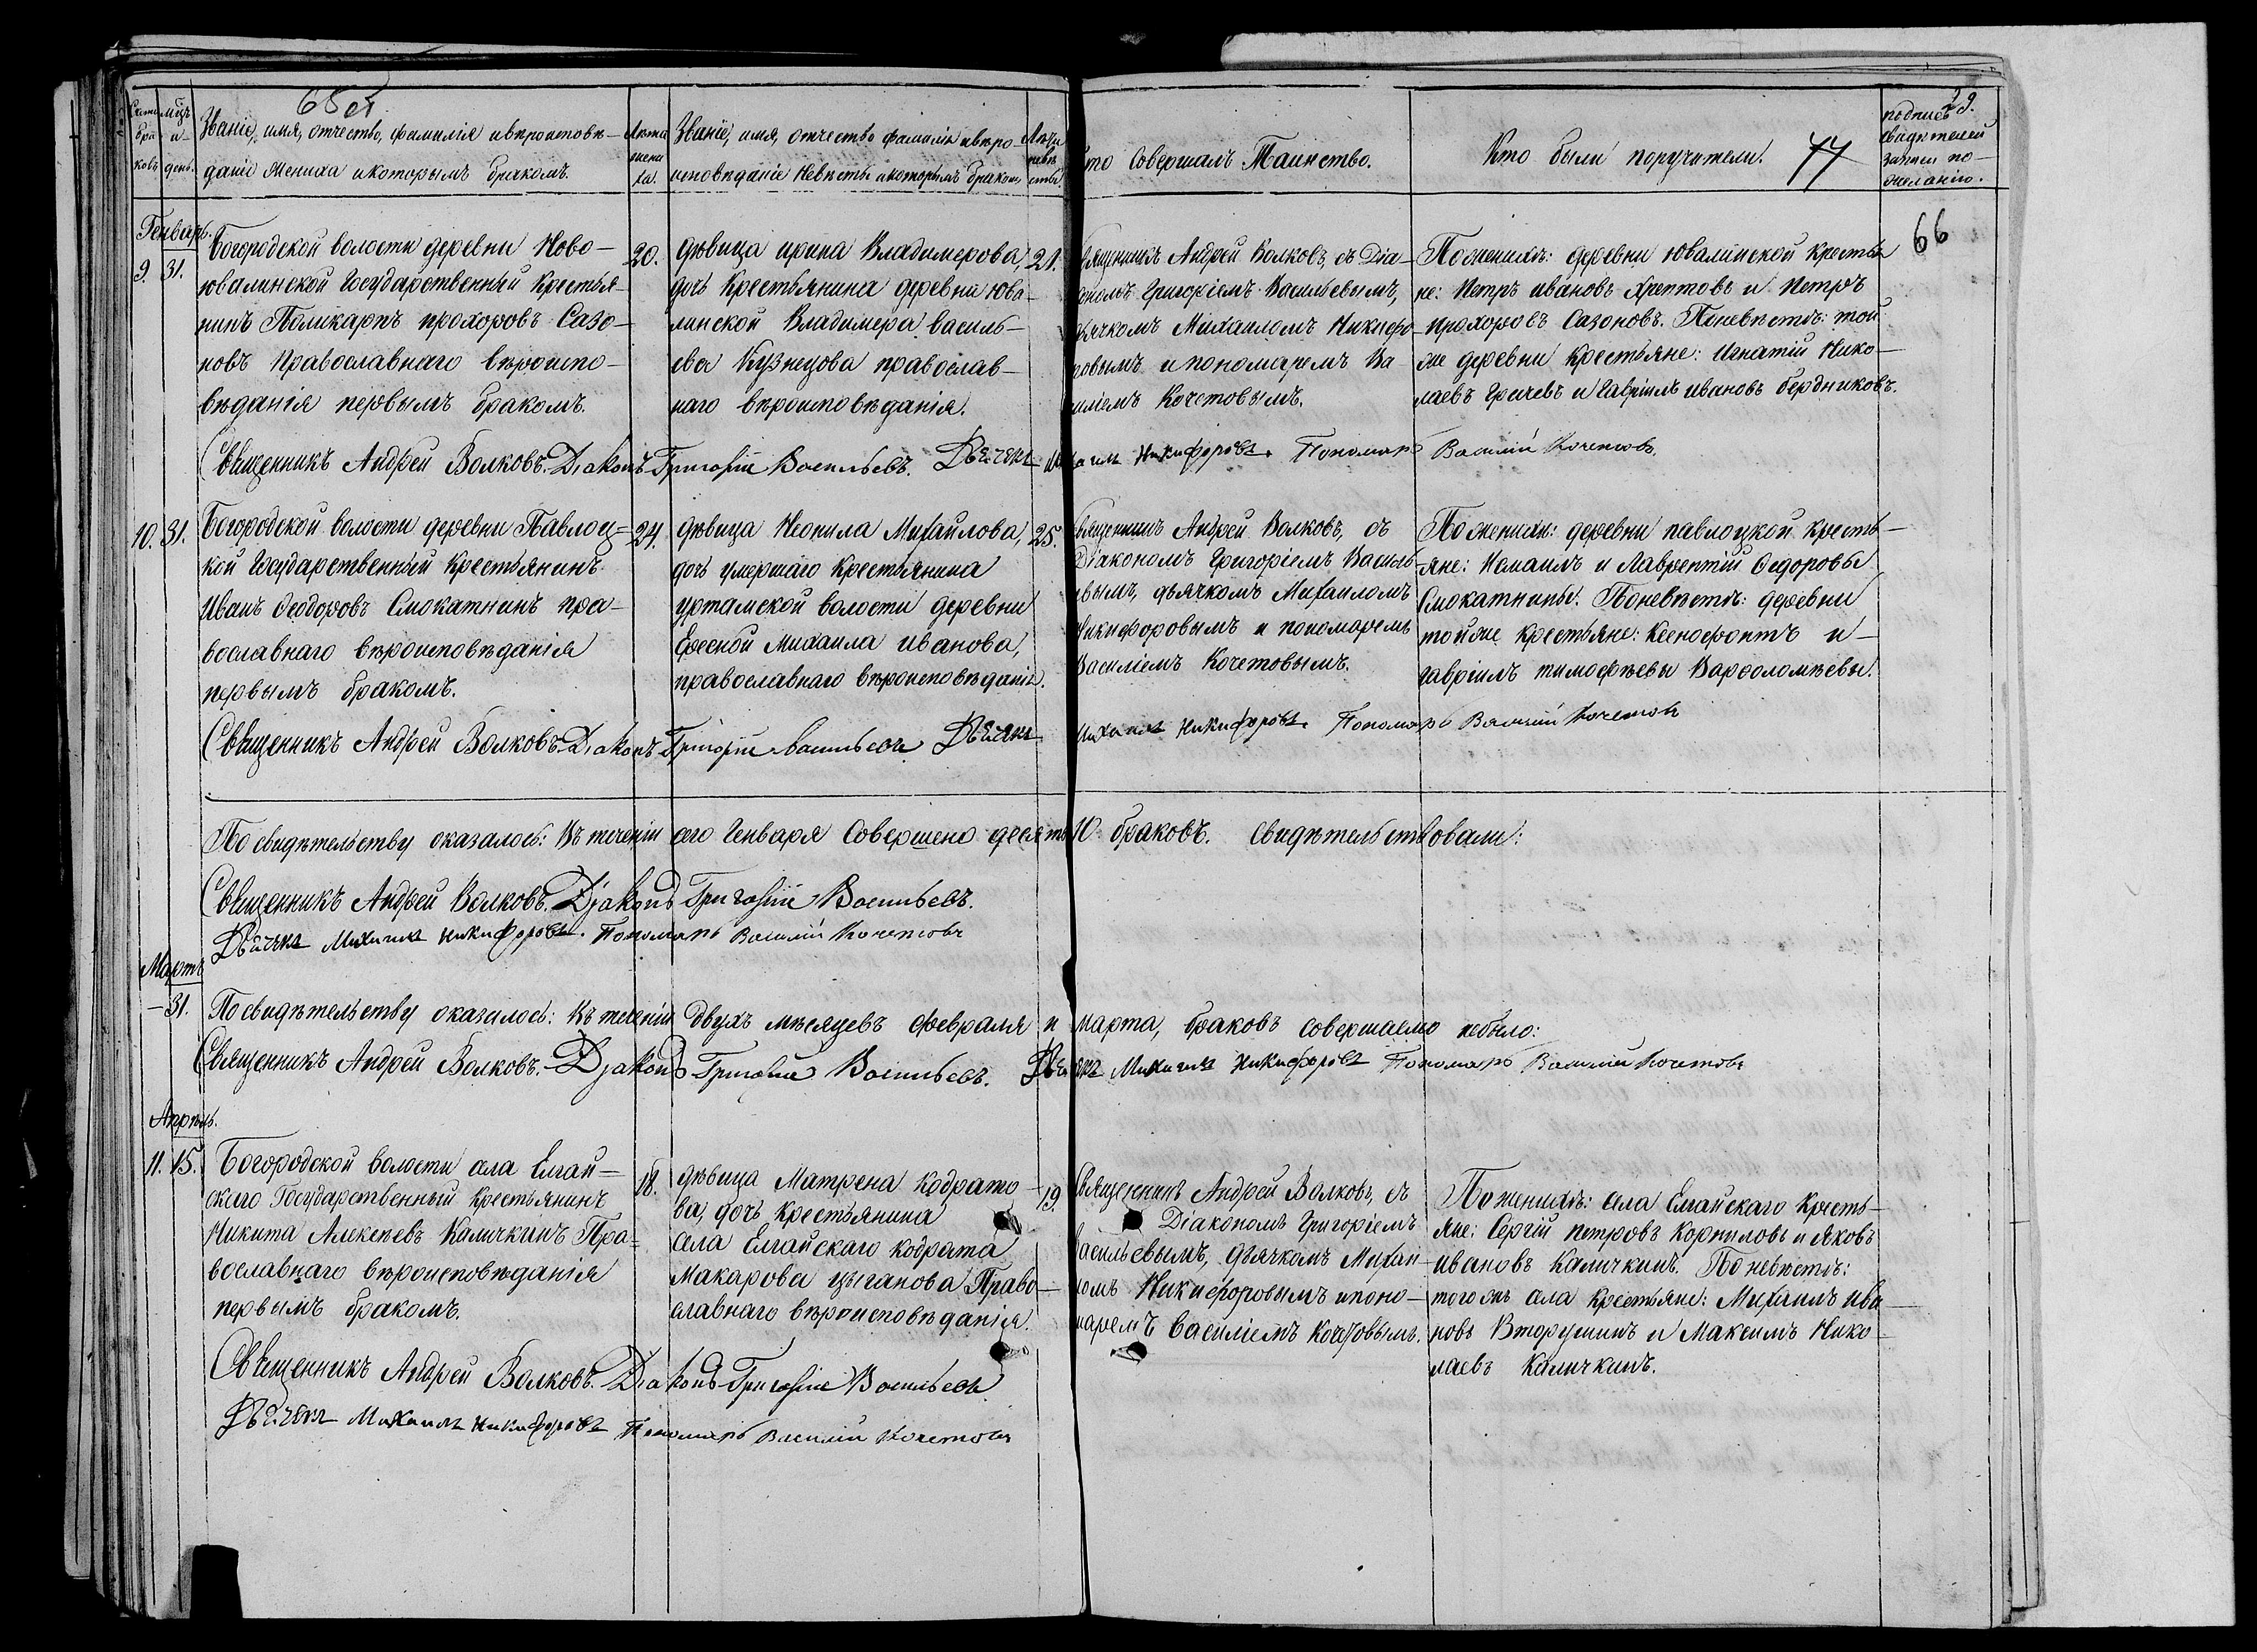 65об
29.
Счетъ браковъ
мцъ и день.
Званіе, имя, отчество, фамилія ивѣроисповѣ-
даніе Жениха икоторымъ бракомъ.
Лѣта жениха.
Званіе, имя, отчество фамилія ивѣро-
исповѣданіе Невѣсты икоторымъ бракомъ
Лѣта невѣсты.
Кто Совершалъ Таинство.
Кто были поручители.
77
подписъ
свидѣтелей
записи по-
желанію.
66
Генварь.
9. 31.
Богородской волости деревни Ново-
ювалинской Государственный Крестья-
нинъ Поликарпъ прохоровъ Сазо-
новъ Православнаго вѣроиспо-
вѣданія первымъ бракомъ.
20.
дѣвица ирина Владимерова,
дочь Крестьянина деревни юва-
линской Владимера василь-
ева Кузнецова православ-
наго вѣроисповѣданія.
21.
Священникъ Андрей Волковъ, съ Діа-
кономъ Григоріемъ Васильевымъ,
дьячкомъ Михаиломъ Никифо-
ровымъ и пономаремъ Ва
силіемъ Кочетовымъ.
По женихѣ: деревни ювалинской крестья
не: Петръ ивановъ Хрептовъ и Петръ
прохоровъ Сазоновъ. Поневѣстѣ: той
же деревни Крестьяне: Игнатій Нико-
лаевъ Грачевъ и Гавріилъ ивановъ бердниковъ.
Священникъ Андрей Волковъ. Діаконъ Григорій Васильевъ. Дьячекъ Михаилъ Никифоровъ. Пономарь Василій Кочетовъ.
10. 31.
Богородской волости деревни Павлоц-
кой Государственный Крестьянинъ
Иванъ Феодоровъ Смокатнинъ пра-
вославнаго вѣроисповѣданія
первымъ бракомъ.
24.
дѣвица Неонила Михайлова,
дочь умершаго Крестьянина
уртамской волости деревни
Еревной Михаила иванова,
православнаго вѣроисповѣданія.
25.
Священникъ Андрей Волковъ, съ
Діакономъ Григоріемъ Василь-
евымъ, дьячкомъ Михаиломъ
Никифоровымъ и пономаремъ
Василіемъ Кочетовымъ.
По женихѣ: деревни павлоцкой кресть-
яне: Исмаилъ и Лаврентій Федоровы
Смокатнины. Поневѣстѣ: деревни
тойже крестьяне: Ксенофонтъ и-
гавріилъ тимофѣевы Варфоломѣевы.
Священникъ Андрей Волковъ. Діаконъ Григорій Васильевъ Дьячекъ Михаилъ Никифоровъ. Пономарь Василій Кочетовъ
По свидѣтельству оказалось: Въ теченіи сего Генваря Совершено десять 10 браковъ. Свидѣтельствовали:
Священникъ Андрей Волковъ. Діаконъ Григорій Васильевъ.
Дьячекъ Михаилъ Никифоровъ. Пономарь Василій Кочетовъ
Мартъ
- 31. По свидѣтельству оказалось: Въ теченіи двухъ мѣсяцевъ февраля и марта, браковъ совершаемо небыло:
Священникъ Андрей Волковъ. Діаконъ Григорій Васильевъ. Дьячекъ Михаилъ Никифоровъ Пономарь Василій Кочетовъ
Апрѣль.
11. 15.
Богородской волости села Елгай-
скаго Государственный Крестьянинъ
Никита Алексѣевъ Каличкинъ Пра-
вославнаго вѣроисповѣданія
первымъ бракомъ.
18.
дѣвица Матрена кодрато-
ва, дочь крестьянина
села Елгайскаго кодрата
Макарова цыганова Право-
славнаго вѣроисповѣданія.
19.
Священникъ Андрей Волковъ, съ
Діакономъ Григоріемъ
Васильевымъ, дьячкомъ Михаи
ломъ Никифоровымъ ипоно-
маремъ Василіемъ Кочетовымъ.
По женихѣ: села Елгайскаго Кресть-
яне: Сергій петровъ Корниловъ и яковъ
ивановъ Каличкинъ. По невѣстѣ:
тогожъ села крестьяне: Михаилъ ива-
новъ Вторушинъ и Максимъ Нико-
лаевъ Каличкинъ.
Священникъ Андрей Волковъ. Діаконъ Григорій Васильевъ
Дьячекъ Михаилъ Никифоровъ Пономарь Василій Кочетовъ